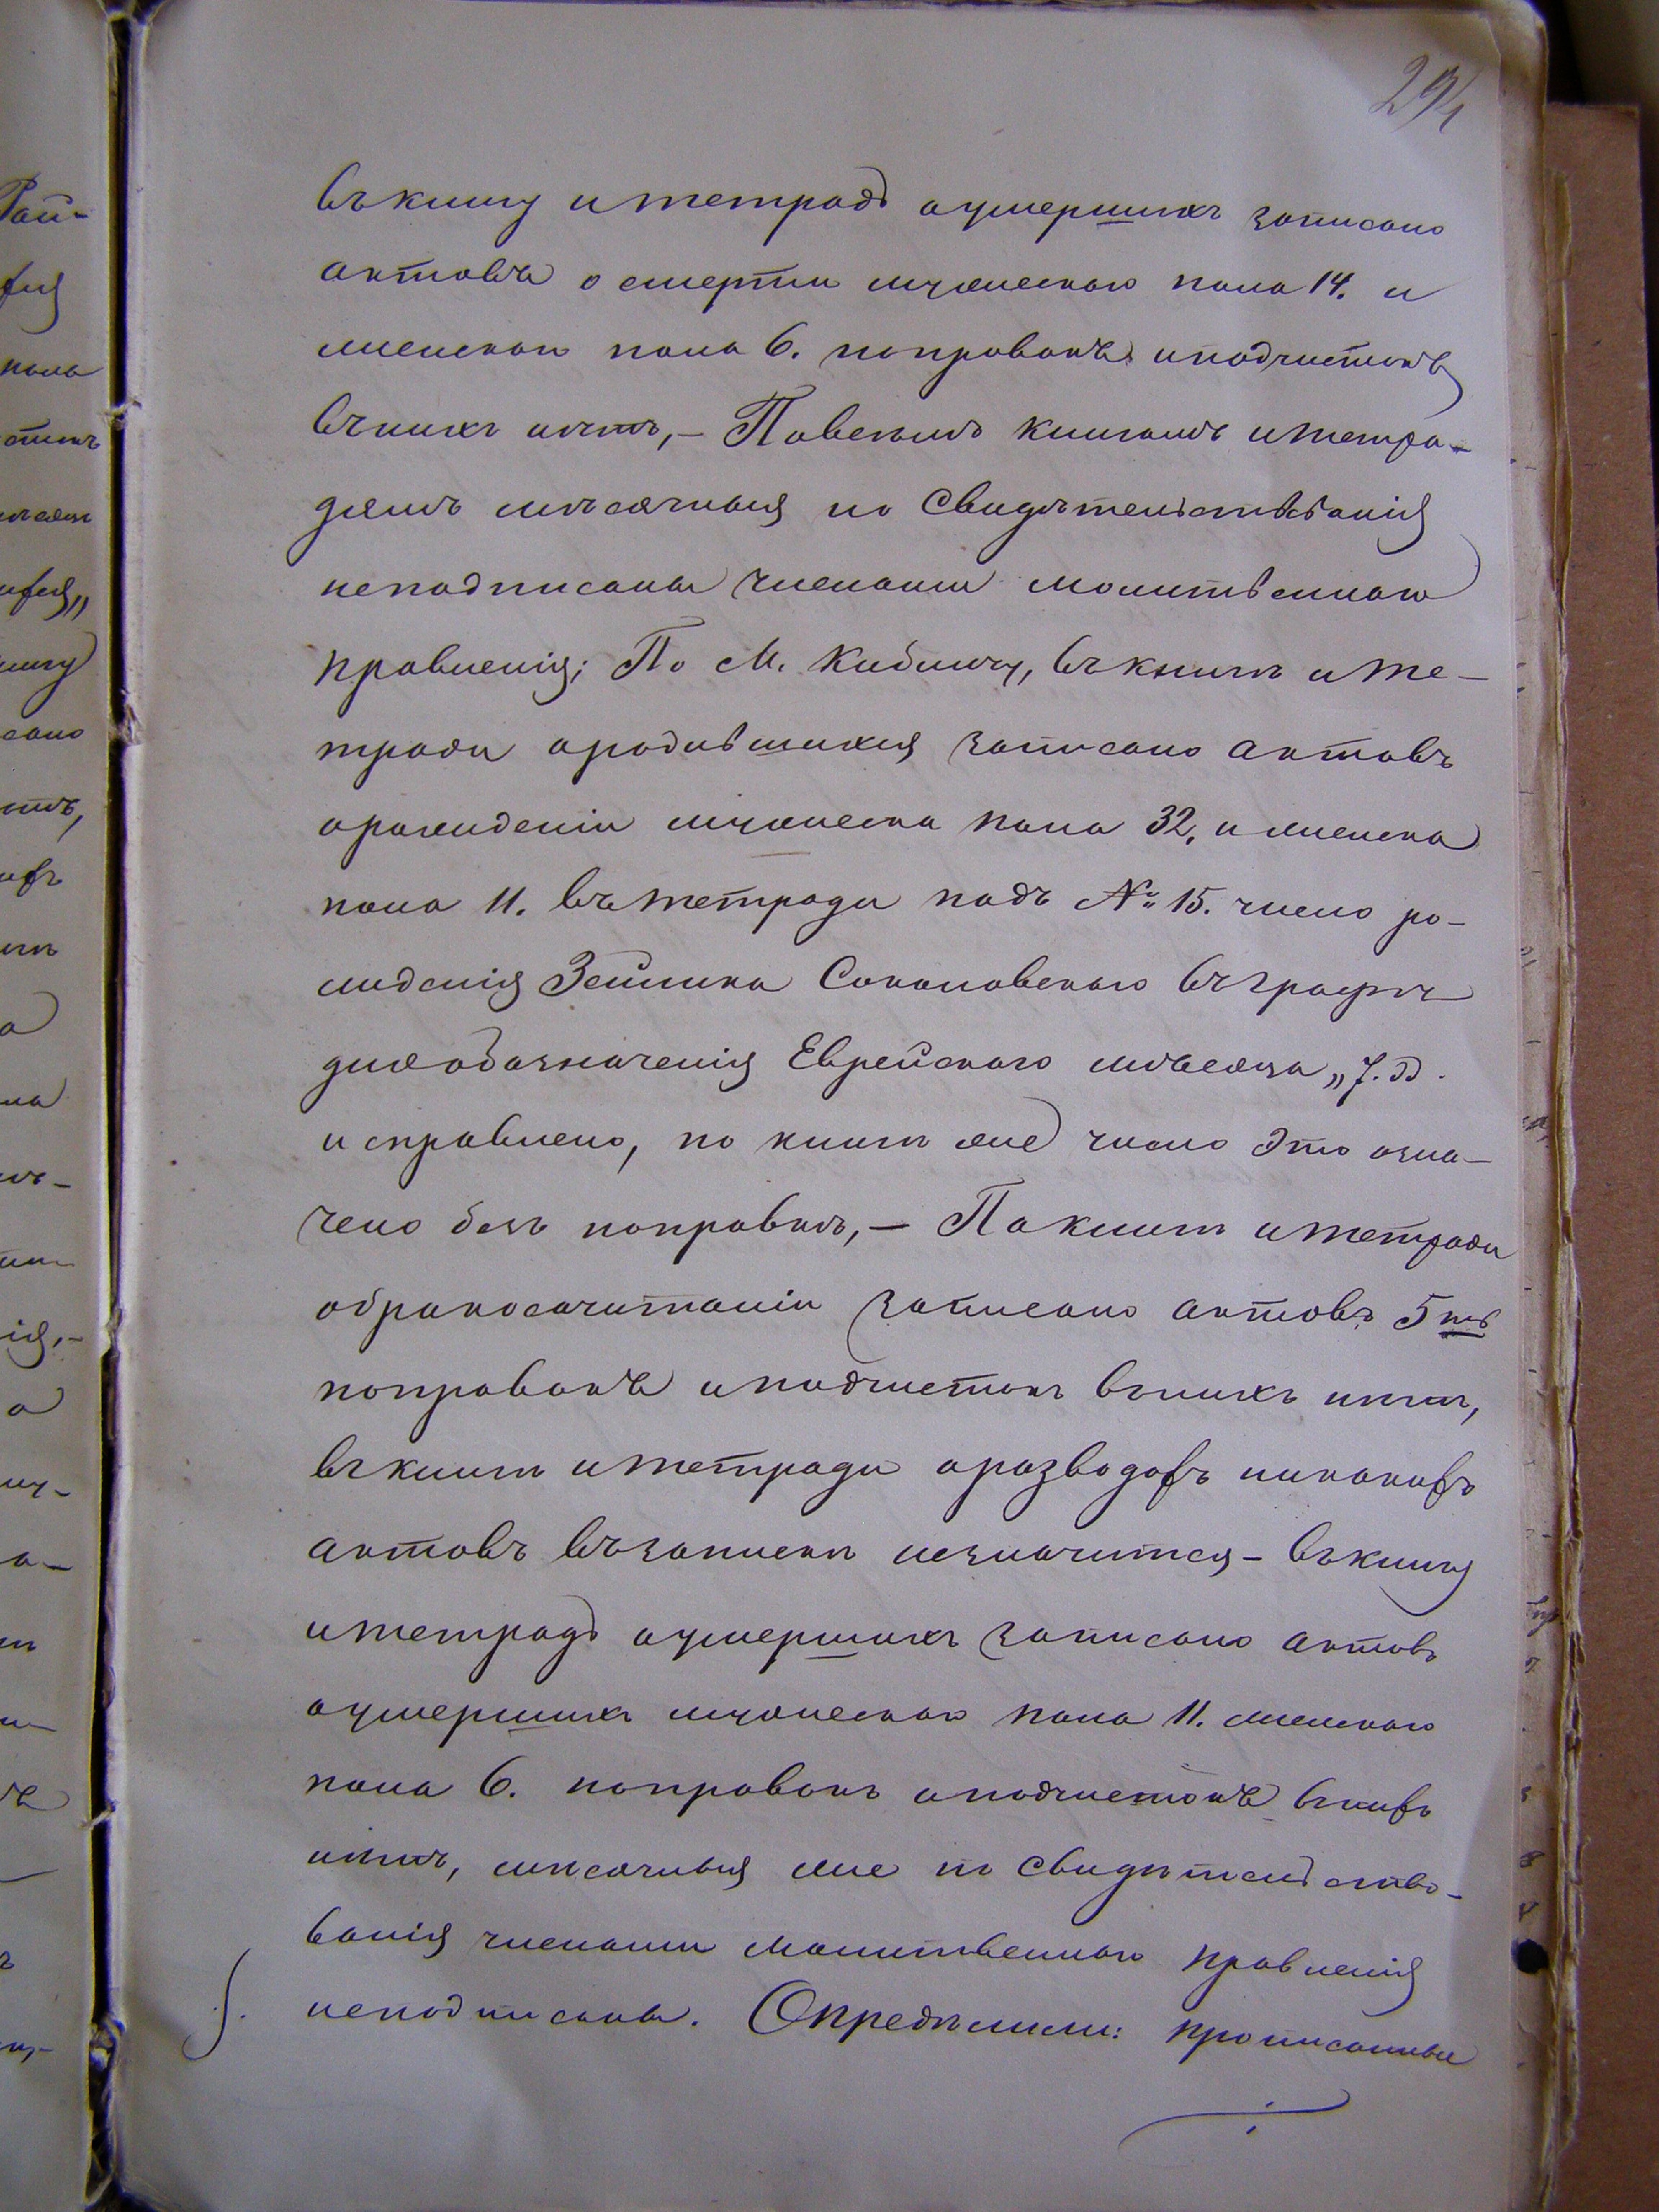 294
въ книгу и тетрадь о умершихъ записано
актовъ о смерти мужескаго пола 14. и
женскаго пола 6. поправокъ и подчистокъ
въ нихъ нѣтъ,— По всѣмъ книгамъ и тетра-
дямъ мѣсячныя по свидѣтельствованія
неподписаны членами молитвеннаго
правленія; По М. Кибличу, въ книгѣ и те-
тради о родившихся записано актовъ
о рожденіи мужеска пола 32, и женска
пола 11. въ тетради подъ № 15. число ро-
жденія Зейлика Соколовскаго въ графѣ
для обозначенія Еврейскаго мѣсяца „7.
исправлено, по книгѣ же число это озна-
чено безъ поправки,— По книгѣ и тетради
о бракосочитаніи записано актовъ 5ть
поправокъ и подчистокъ в нихъ нѣтъ,
въ книгѣ и тетради о разводахъ никакихъ
актовъ въ запискѣ незначится— въ книгу
и тетрадь о умершихъ записано актовъ
о умершихъ мужескаго пола 11. женскаго
пола 6. поправокъ и подчистокъ в нихъ
нѣтъ, мѣсячныя же по свидѣтельство-
ванія членами молитвеннаго правленія
неподписаны. Опредѣлили: прописанные